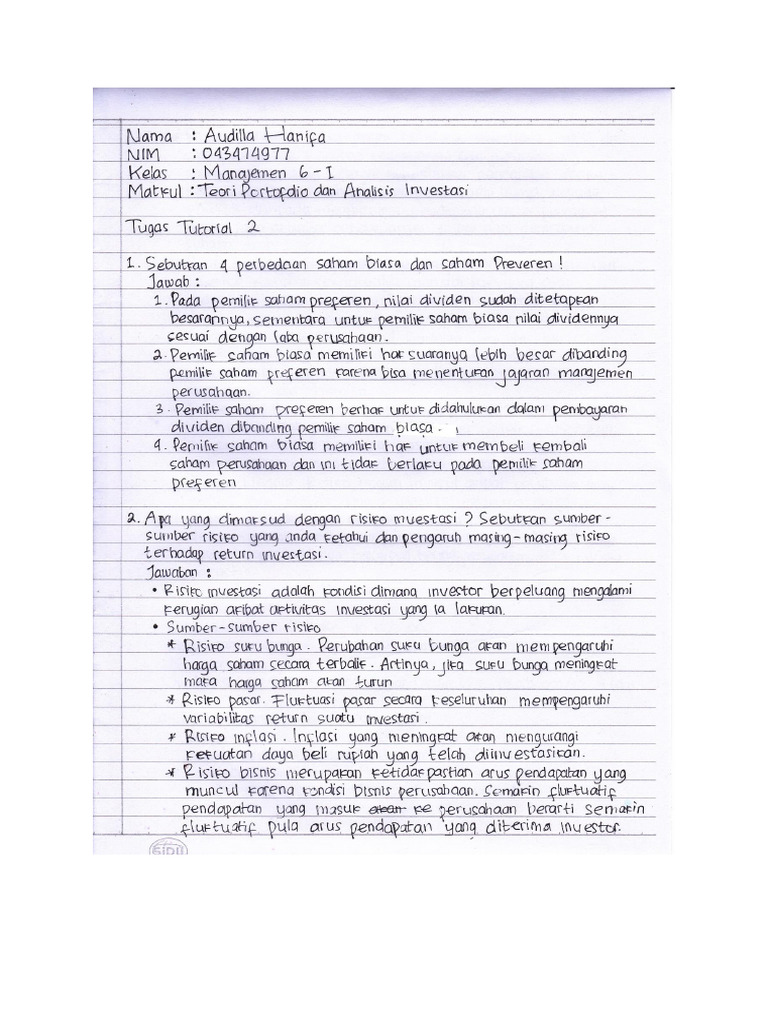 Nama : Audilla Hanifa
NIM : 043474977
Kelas : Manajemen 6 - I
Matkul : Teori Portofolio dan Analisis Investasi
Tugas Tutorial 2
1. Sebutkan 4 perbedaan saham biasa dan saham Preveren !
Jawab :
1. Pada pemilik saham preferen, nilai dividen sudah ditetapkan
besarannya, sementara untuk pemilik saham biasa nilai dividennya
sesuai dengan laba perusahaan.
2. Pemilik saham biasa memiliki hak suaranya lebih besar dibanding
pemilik saham preferen karena bisa menentukan jajaran manajemen
perusahaan.
3. Pemilik saham preferen berhak untuk didahulukan dalam pembayaran
dividen dibanding pemilik saham biasa.
4. Pemilik saham biasa memiliki hak untuk membeli kembali
saham perusahaan dan ini tidak berlaku pada pemilik saham
preferen
2. Apa yang dimaksud dengan risiko investasi ? Sebutkan sumber-
sumber risiko yang anda ketahui dan pengaruh masing-masing risiko
terhadap return investasi.
Jawaban :
• Risiko investasi adalah kondisi dimana investor berpeluang mengalami
kerugian akibat aktivitas investasi yang ia lakukan.
• Sumber-sumber risiko
* Risiko suku bunga. Perubahan suku bunga akan mempengaruhi
harga saham secara terbalik. Artinya, jika suku bunga meningkat
maka harga saham akan turun
* Risiko pasar. Fluktuasi pasar secara keseluruhan mempengaruhi
variabilitas return suatu investasi.
* Risiko inflasi. Inflasi yang meningkat akan mengurangi
kekuatan daya beli rupiah yang telah diinvestasikan.
* Risiko bisnis merupakan ketidakpastian arus pendapatan yang
muncul karena kondisi bisnis perusahaan. Semakin fluktuatif
pendapatan yang masuk akan ke perusahaan berarti semakin
fluktuatif pula arus pendapatan yang diterima investor.
SIDU